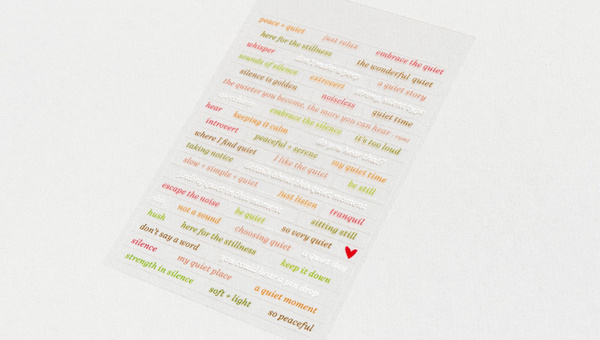 peace + quiet just relax embrace the quiet
here for the stillness the wonderful quiet
whisper
sounds of silence extrovert a quiet story
silence is golden noiseless quiet time
the quieter you become, the more you can hear
hear embrace the silence it's too loud
keeping it calm
introvert peaceful + serene my quiet time
where I find quiet I like the quiet be still
taking notice
slow + simple + quiet just listen tranquil
escape the noise be quiet sitting still
hush not a sound so very quiet
don't say a word here for the stillness choosing quiet a quiet
silence my quiet place heard a pin drop keep it down
strength in silence soft + light a quiet moment
so peaceful